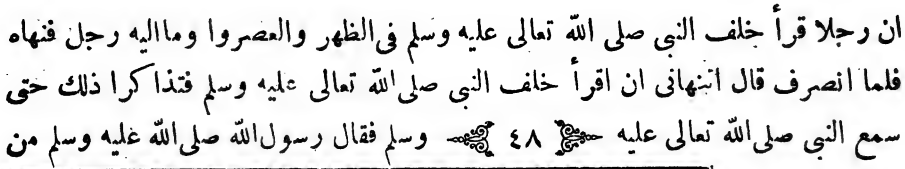 ان رجلا قرأ خلف النبى صلى الله تعالى عليه وسلم فى الظهر والعصر وا وما اليه رجل فنهاه
فلما انصرف قال اتنهانى ان اقرأ خلف النبى صلى الله تعالى عليه وسلم فتذا كرا ذلك حتى
سمع النبى صلى الله تعالى عليه ﴿ ٤٨ ﴾ وسلم فقال رسول الله صلى الله عليه وسلم من